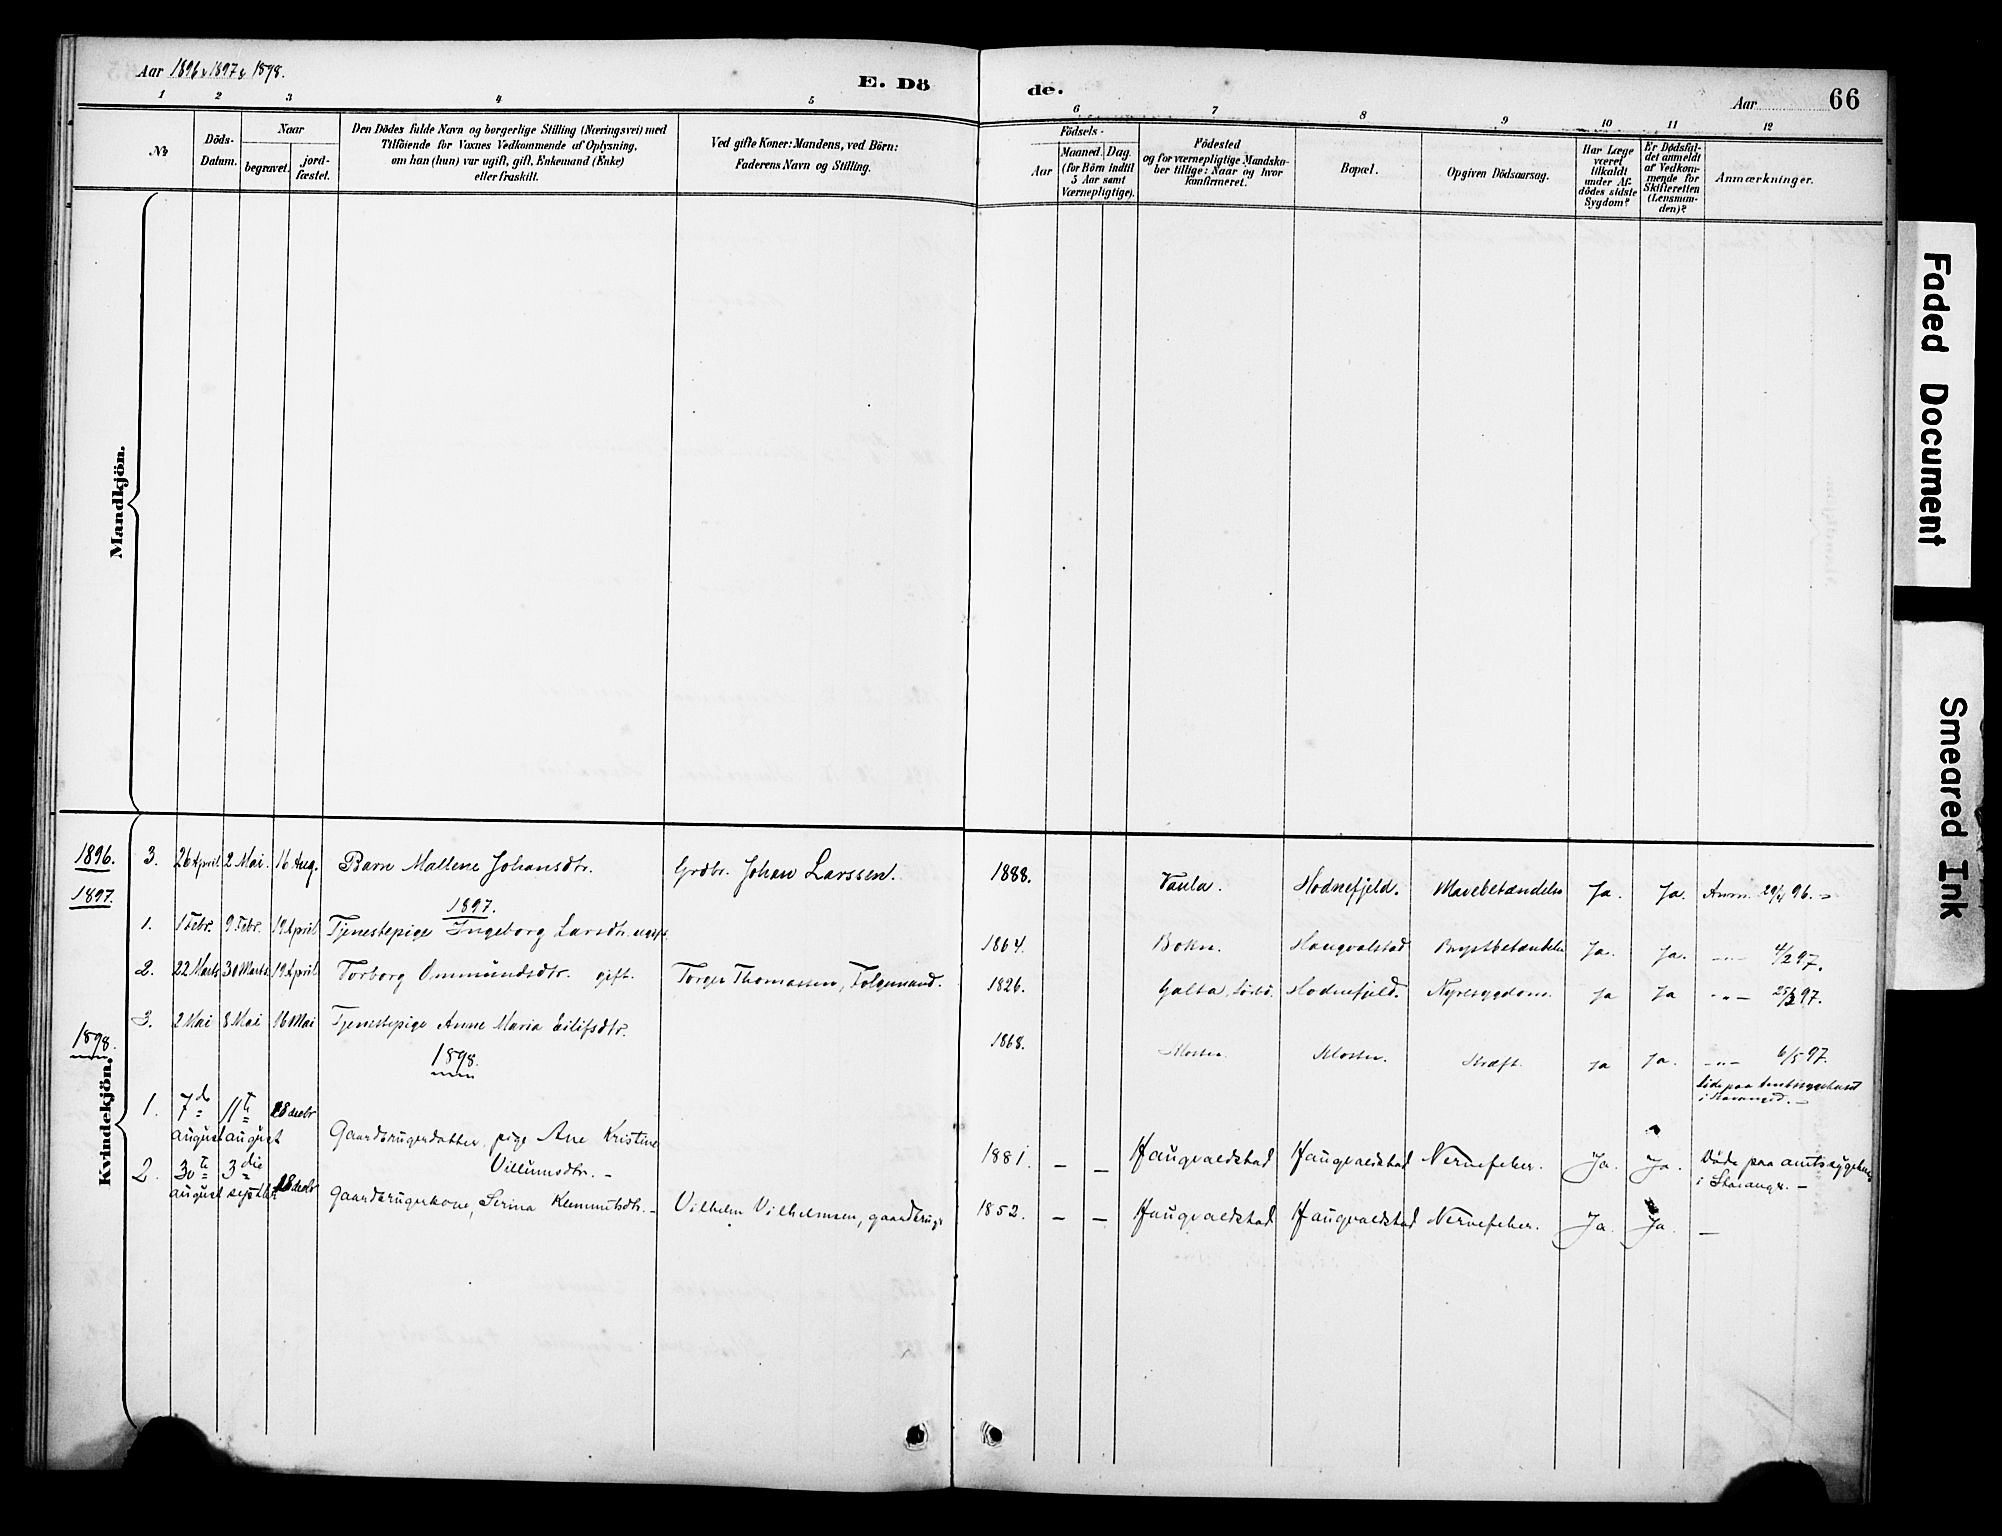 Aar 1896, 1897 & 1898.
E. Dö
de.
Aar
66
1 2 3 4 5 6 7 8 9 10 11 12
No
Döds-
Datum.
Naar
begravet.
jord-
fæstet.
Den Dödes fulde Navn og borgerlige Stilling (Næringsvei) med
Tilföiende for Voxnes Vedkommende af Oplysning,
om han (hun) var ugift, gift, Enkemand (Enke)
eller fraskilt.
Ved gifte Koner: Mandens, ved Börn:
Faderens Navn og Stilling.
Födsels-
Aar
Maaned.
Dag.
(for Börn indtil
5 Aar samt
Værnepligtige).
Födested
og for værnepligtige Mandska-
ber tillige: Naar og hvor
konfirmeret.
Bopæl.
Opgiven Dödsaarsag.
Har Læge
været
tilkaldt
under Af-
dödes sidste
Sygdom?
Er Dödsfal-
det anmeldt
af Vedkom-
mende for
Skifteretten
(Lensman-
den)?
Anmærkninger.
Mandkjön.
Kvindekjön.
1896. 3. 26 April 2 Mai 16 Aug. Barn Mallene Johansdtr. Grdbr. Johan Larssen. 1888. Vaula. Hodnefjeld. Mavebetændelse Ja. Ja. Anm. 29/4 96. -
1897.
1897.
1. 1 Febr. 9 Febr. 19 April Tjenestepige Ingeborg Larsdtr. ugift. 1864. Bokn. Haugvalstad Brystbetændelse Ja. Ja. -„- 4/2 97.
2. 22 Marts 30 Marts 19 April Torborg Ommundsdtr. gift. Torger Thomassen, Folgemand. 1826. Galta, Hodnefjeld. Nyresygdom. Ja Ja -„- 25/3 97.
3. 2 Mai 8 Mai 16 Mai Tjenestepige Anne Maria Eilifsdtr. 1868. Kloster. Kloster. Kræft. Ja Ja. -„- 6/5 97.
1898.
1898.
1. 7de august 11te august 18 Gaardbrugerdatter, pige Ane Kristine
Villumsdtr. - 1881. - - Haugvaldstad Haugvaldstad Nervefeber. Ja. Ja. Døde paa amtssygehus
i Stavanger. -
2. 30te august 3die septbr. 18 Gaardbrugerkone, Serina Klemmetsdtr. - Vilhelm Vilhelmsen, gaardbrug. 1852. - - Haugvaldstad Haugvaldstad Nervefeber. Ja. Ja. -
Faded Document
Smeared Ink